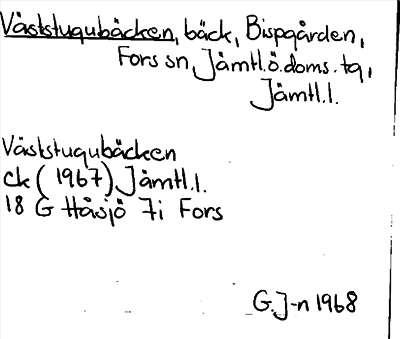 Väststugubäcken, bäck, Bispgården,
Fors sn, Jämtl.ö.doms.tg,
Jämtl.l.
Väststugubäcken
ck (1967) Jämtl.l.
18 G Håsjö 7i Fors
G.J-n 1968